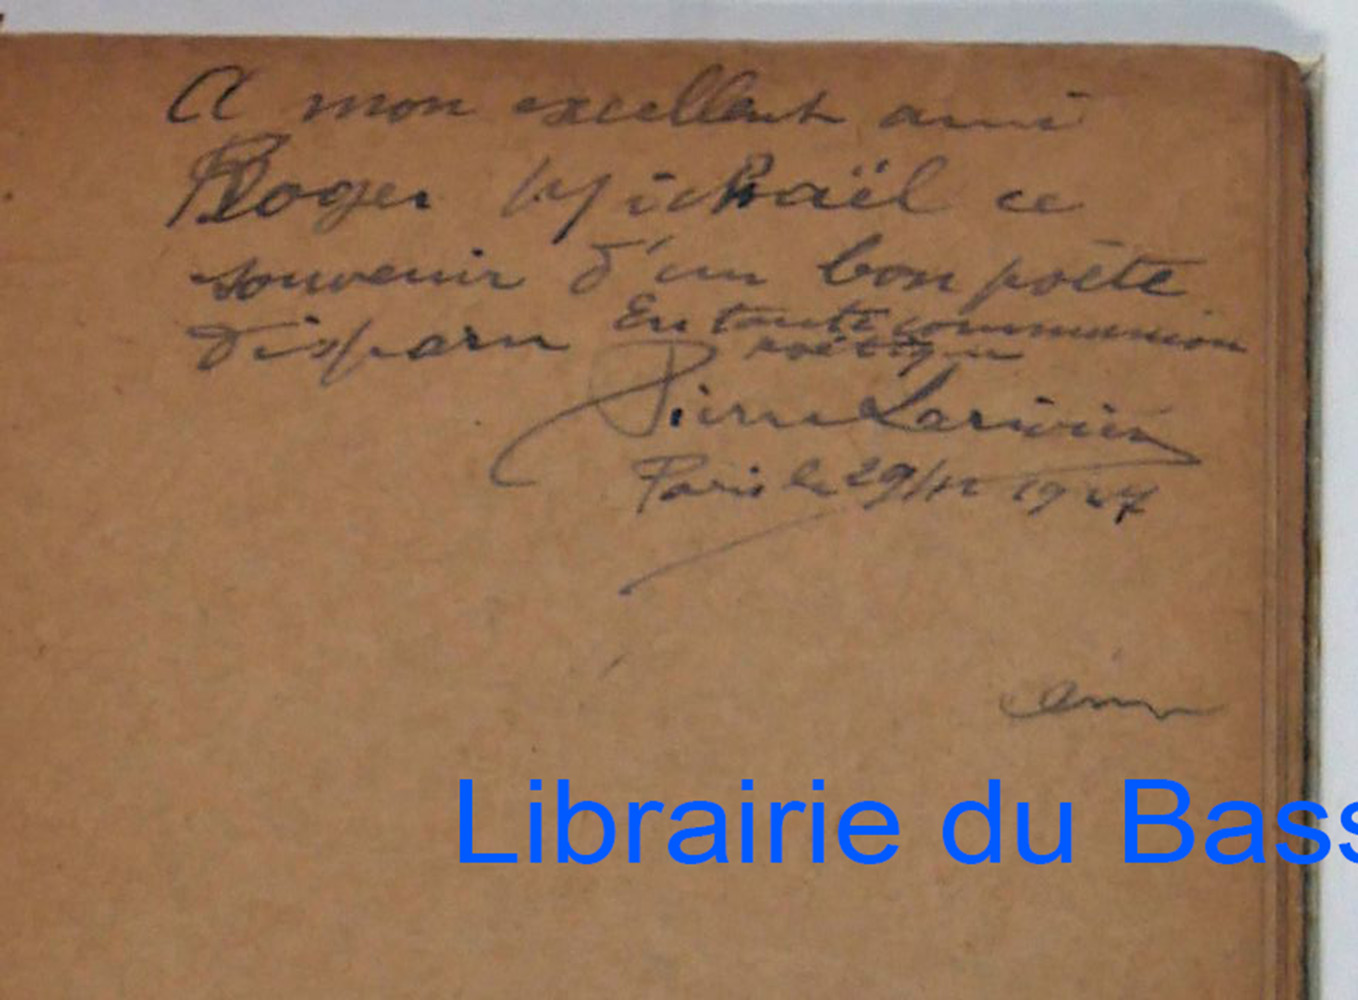 A mon excellent ami
Roger Mickaël ce
souvenir d'un bon poète
disparu En toute communion
poétique
Pierre Larivière
Paris le 29/12 1947
Librairie du Bass